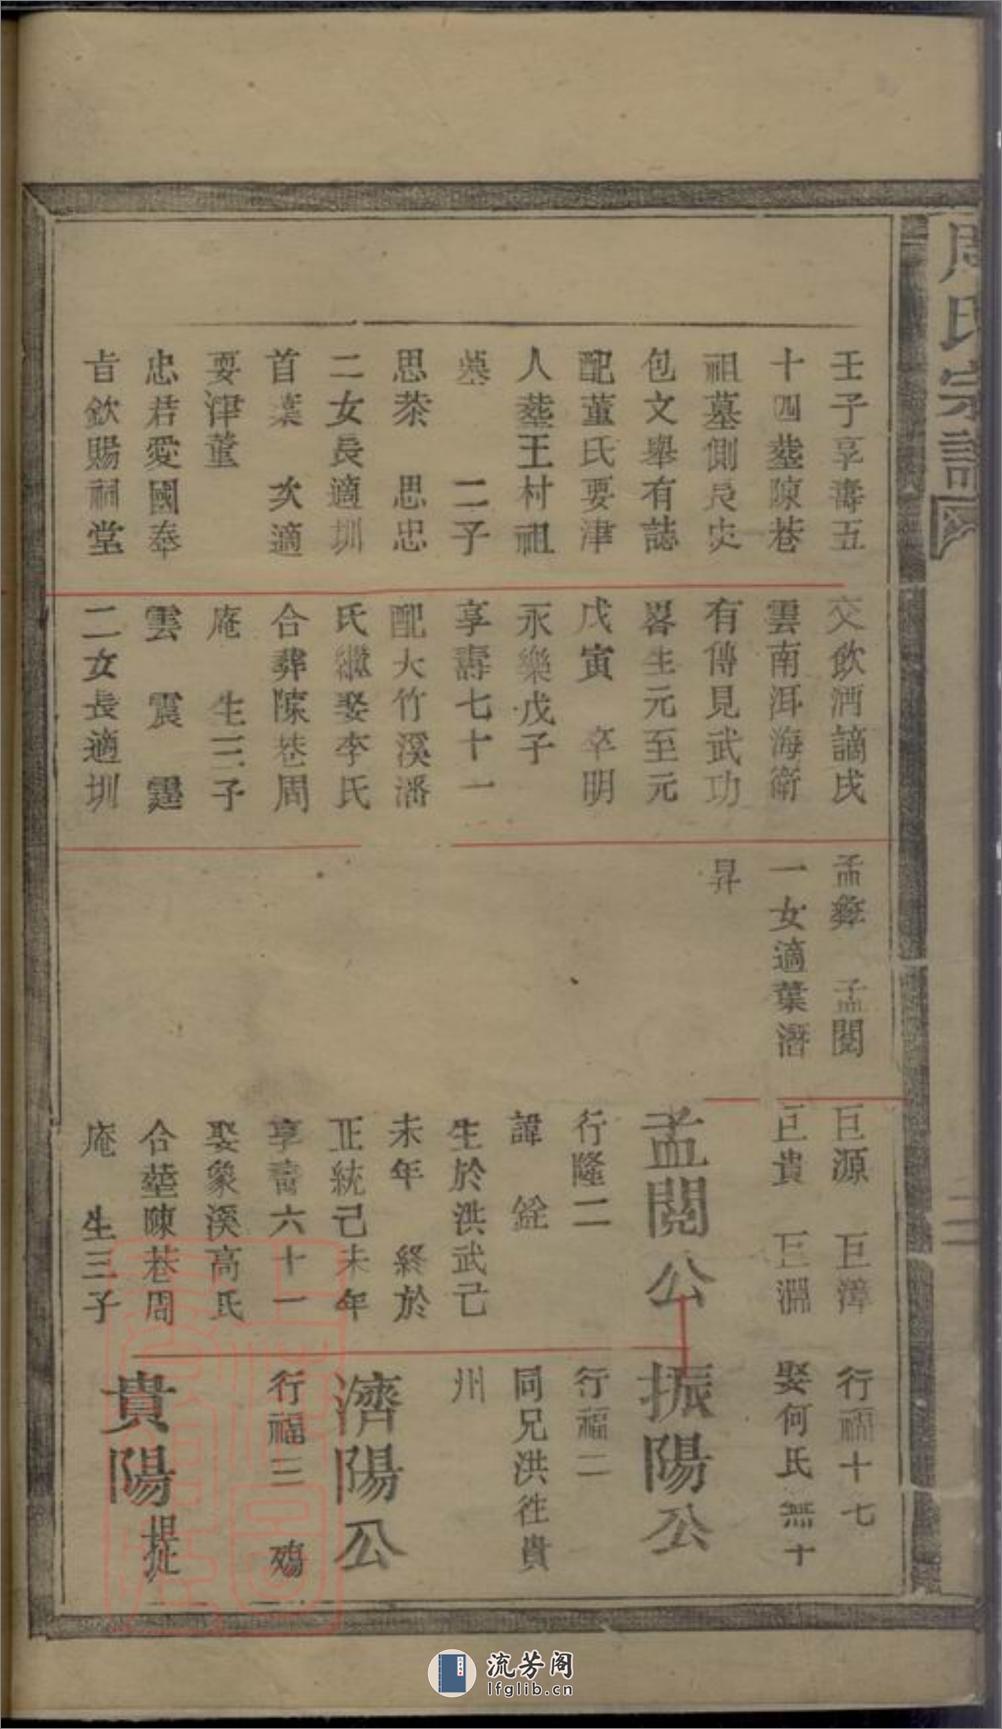 周氏宗譜
壬子享壽五
十四塟陳巷
祖墓側長史
包文舉有誌
配董氏要津
人塟王村祖
墓 二子
思恭 思忠
二女長適圳
首葉 次適
要津董
忠君愛國奉
旨欽賜祠堂
交飲酒謫戌
雲南洱海衛
有傳見武功
畧生元至元
戊寅 卒明
永樂戊子
享壽七十一
配大竹溪潘
氏繼娶李氏
合葬陳巷周
庵 生三子
雲 震 霆
二女長適圳
孟彝 孟閱
一女適葉潛
昇
巨源 巨漳
巨貴 巨淵
孟閱公
行隆二
諱 銓
生於洪武己
未年 終於
正統己未年
享壽六十一
娶象溪高氏
合塟陳巷周
庵 生三子
行福十七
娶何氏無子
振陽公
行福二
同兄洪往貴
州
濟陽公
行福三 殤
貴陽
流芳阁
lfglib.cn